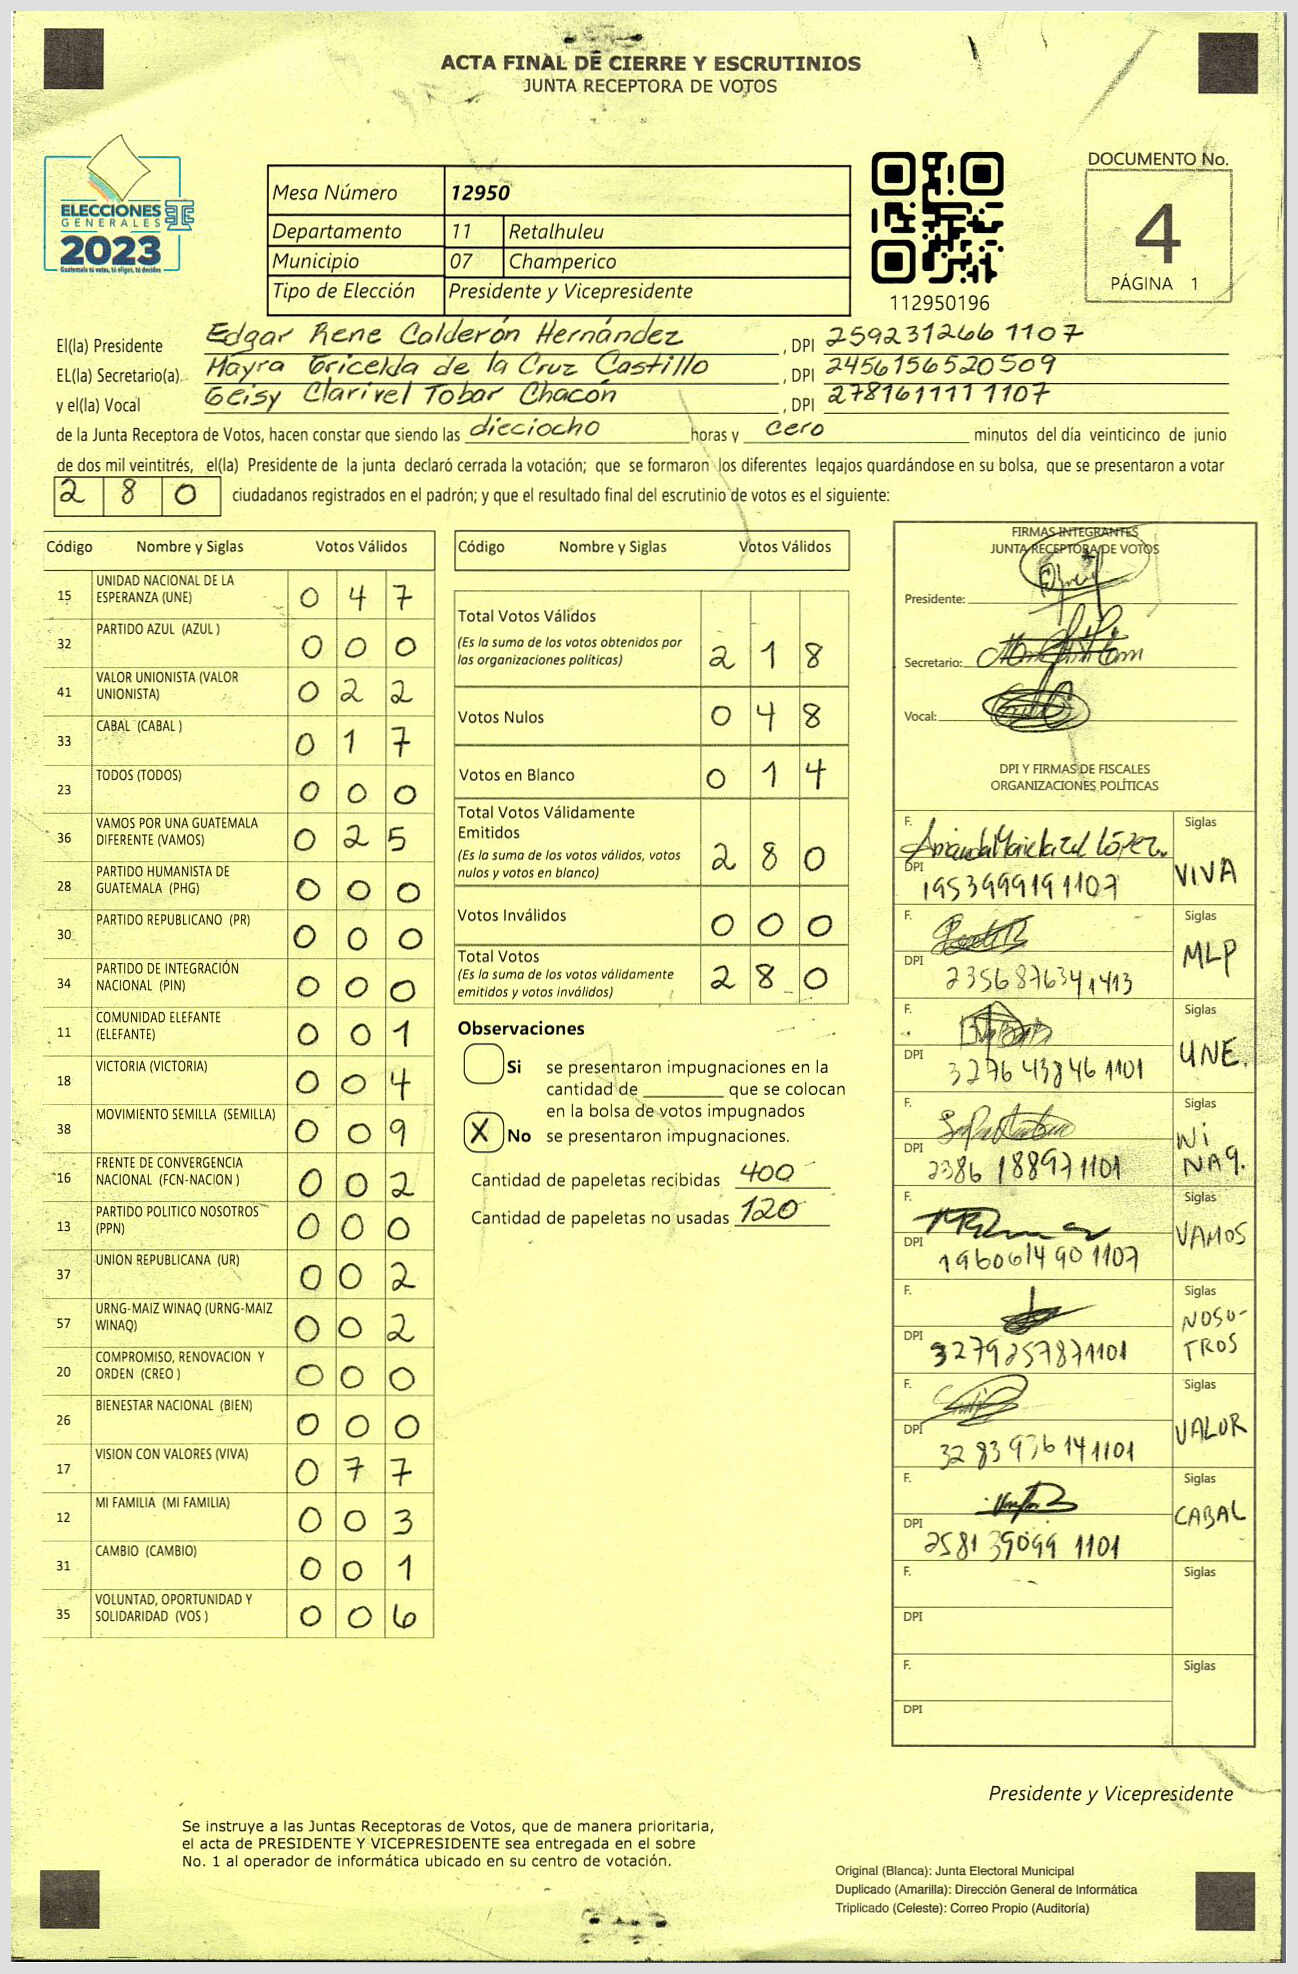 ACTA FINAL DE CIERRE Y ESCRUTINIOS
JUNTA RECEPTORA DE VOTOS
ELECCIONES
GENERALES
2023
Guatemala tú votas, tú eliges, tú decides
Mesa Número 12950
Departamento 11 Retalhuleu
Municipio 07 Champerico
Tipo de Elección Presidente y Vicepresidente
112950196
DOCUMENTO No.
4
PÁGINA 1
El(la) Presidente Edgar Rene Calderón Hernández, DPI 2592312661107
EL(la) Secretario(a) Mayra Gricelda de la Cruz Castillo, DPI 2456156520509
y el(la) Vocal Geisy Clarivel Tobar Chacón, DPI 2781611111107
de la Junta Receptora de Votos, hacen constar que siendo las dieciocho horas y cero minutos del día veinticinco de junio
de dos mil veintitrés, el(la) Presidente de la junta declaró cerrada la votación; que se formaron los diferentes legajos guardándose en su bolsa, que se presentaron a votar
280 ciudadanos registrados en el padrón; y que el resultado final del escrutinio de votos es el siguiente:
Código Nombre y Siglas Votos Válidos
15 UNIDAD NACIONAL DE LA ESPERANZA (UNE) 0 4 7
32 PARTIDO AZUL (AZUL ) 0 0 0
41 VALOR UNIONISTA (VALOR UNIONISTA) 0 2 2
33 CABAL (CABAL ) 0 1 7
23 TODOS (TODOS) 0 0 0
36 VAMOS POR UNA GUATEMALA DIFERENTE (VAMOS) 0 2 5
28 PARTIDO HUMANISTA DE GUATEMALA (PHG) 0 0 0
30 PARTIDO REPUBLICANO (PR) 0 0 0
34 PARTIDO DE INTEGRACIÓN NACIONAL (PIN) 0 0 0
11 COMUNIDAD ELEFANTE (ELEFANTE) 0 0 1
18 VICTORIA (VICTORIA) 0 0 4
38 MOVIMIENTO SEMILLA (SEMILLA) 0 0 9
16 FRENTE DE CONVERGENCIA NACIONAL (FCN-NACION ) 0 0 2
13 PARTIDO POLITICO NOSOTROS (PPN) 0 0 0
37 UNION REPUBLICANA (UR) 0 0 2
57 URNG-MAIZ WINAQ (URNG-MAIZ WINAQ) 0 0 2
20 COMPROMISO, RENOVACION Y ORDEN (CREO ) 0 0 0
26 BIENESTAR NACIONAL (BIEN) 0 0 0
17 VISION CON VALORES (VIVA) 0 7 7
12 MI FAMILIA (MI FAMILIA) 0 0 3
31 CAMBIO (CAMBIO) 0 0 1
35 VOLUNTAD, OPORTUNIDAD Y SOLIDARIDAD (VOS ) 0 0 6
Código Nombre y Siglas Votos Válidos
Total Votos Válidos
(Es la suma de los votos obtenidos por las organizaciones políticas) 2 1 8
Votos Nulos 0 4 8
Votos en Blanco 0 1 4
Total Votos Válidamente Emitidos
(Es la suma de los votos válidos, votos nulos y votos en blanco) 2 8 0
Votos Inválidos 0 0 0
Total Votos
(Es la suma de los votos válidamente emitidos y votos inválidos) 2 8 0
Observaciones
Si se presentaron impugnaciones en la
cantidad de ________ que se colocan
en la bolsa de votos impugnados
X No se presentaron impugnaciones.
Cantidad de papeletas recibidas 400
Cantidad de papeletas no usadas 120
FIRMAS INTEGRANTES
JUNTA RECEPTORA DE VOTOS
Presidente:
Secretario:
Vocal:
DPI Y FIRMAS DE FISCALES
ORGANIZACIONES POLÍTICAS
F. Siglas
DPI 1953999191107 VIVA
F. Siglas
DPI 2356876341413 MLP
F. Siglas
DPI 3276438461101 UNE.
F. Siglas
DPI 2386188971101 WINAQ.
F. Siglas
DPI 1960614901107 VAMOS
F. Siglas
DPI 3279257871101 NOSO-TROS
F. Siglas
DPI 3283936141101 VALOR
F. Siglas
DPI 2581390991101 CABAL
F. Siglas
DPI
F. Siglas
DPI
Presidente y Vicepresidente
Se instruye a las Juntas Receptoras de Votos, que de manera prioritaria,
el acta de PRESIDENTE Y VICEPRESIDENTE sea entregada en el sobre
No. 1 al operador de informática ubicado en su centro de votación.
Original (Blanca): Junta Electoral Municipal
Duplicado (Amarilla): Dirección General de Informática
Triplicado (Celeste): Correo Propio (Auditoría)